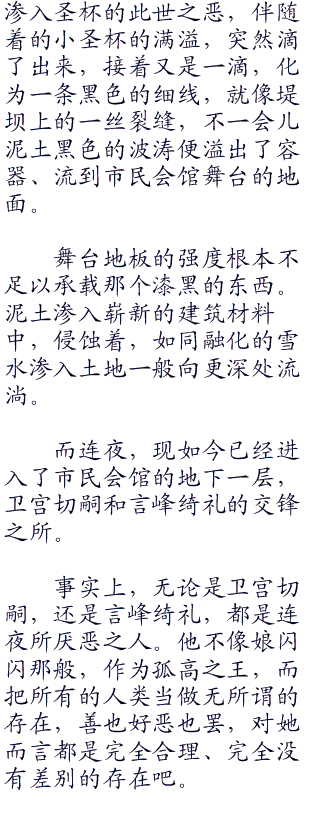 渗入圣杯的此世之恶，伴随
着的小圣杯的满溢，突然滴
了出来，接着又是一滴，化
为一条黑色的细线，就像堤
坝上的一丝裂缝，不一会儿
泥土黑色的波涛便溢出了容
器、流到市民会馆舞台的地
面。
舞台地板的强度根本不
足以承载那个漆黑的东西。
泥土渗入崭新的建筑材料
中，侵蚀着，如同融化的雪
水渗入土地一般向更深处流
淌。
而连夜，现如今已经进
入了市民会馆的地下一层，
卫宫切嗣和言峰绮礼的交锋
之所。
事实上，无论是卫宫切
嗣，还是言峰绮礼，都是连
夜所厌恶之人。他不像娘闪
闪那般，作为孤高之王，而
把所有的人类当做无所谓的
存在，善也好恶也罢，对她
而言都是完全合理、完全没
有差别的存在吧。